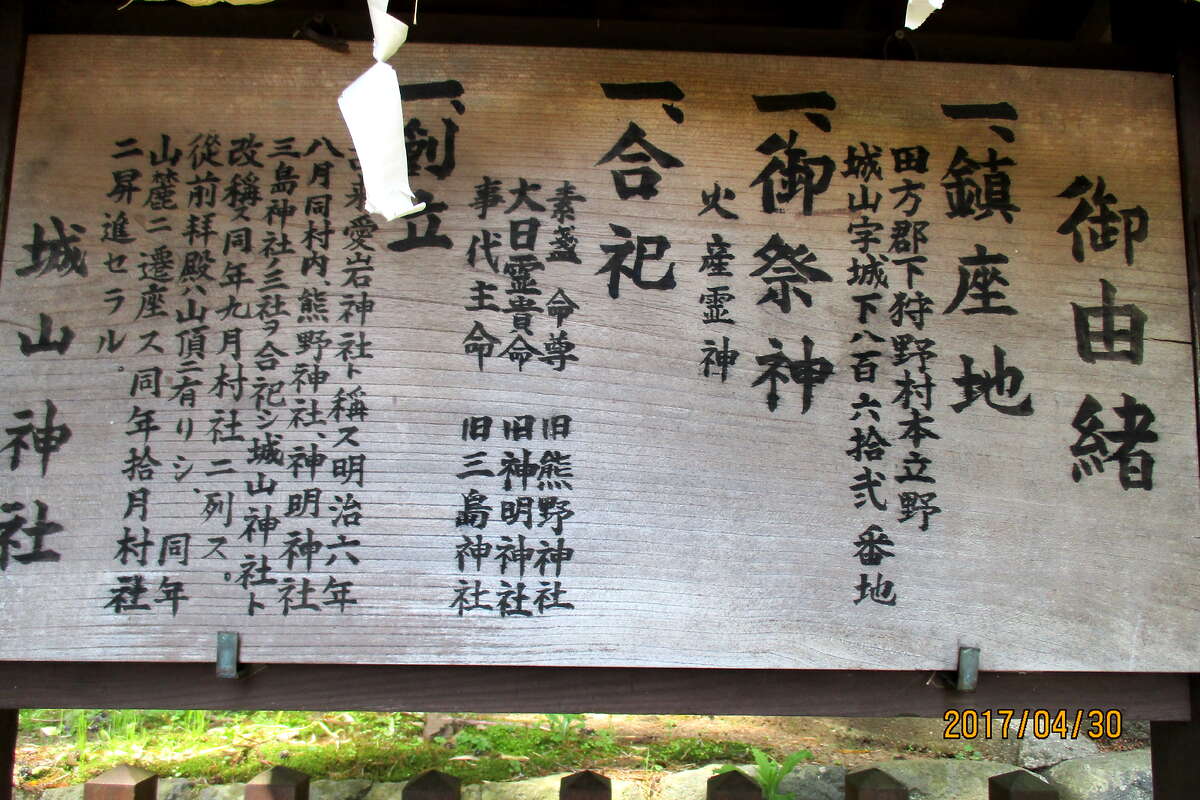 御由緒
一、鎮座地
田方郡下狩野村本立野
城山字城下八百六拾弐番地
一、御祭神
火産霊神
一、合祀
素盞命尊 旧熊野神社
大日霊貴命 旧神明神社
事代主命 旧三島神社
一、創立
来愛岩神社ト稱ス明治六年
八月同村内、熊野神社、神明神社
三島神社ノ三社ヲ合祀シ城山神社ト
改稱ス同年九月村社ニ列ス。
從前拜殿ハ山頂ニ有リシ、同年
山麓ニ遷座ス同年拾月村社
ニ昇進セラル。
城山神社
2017/04/30